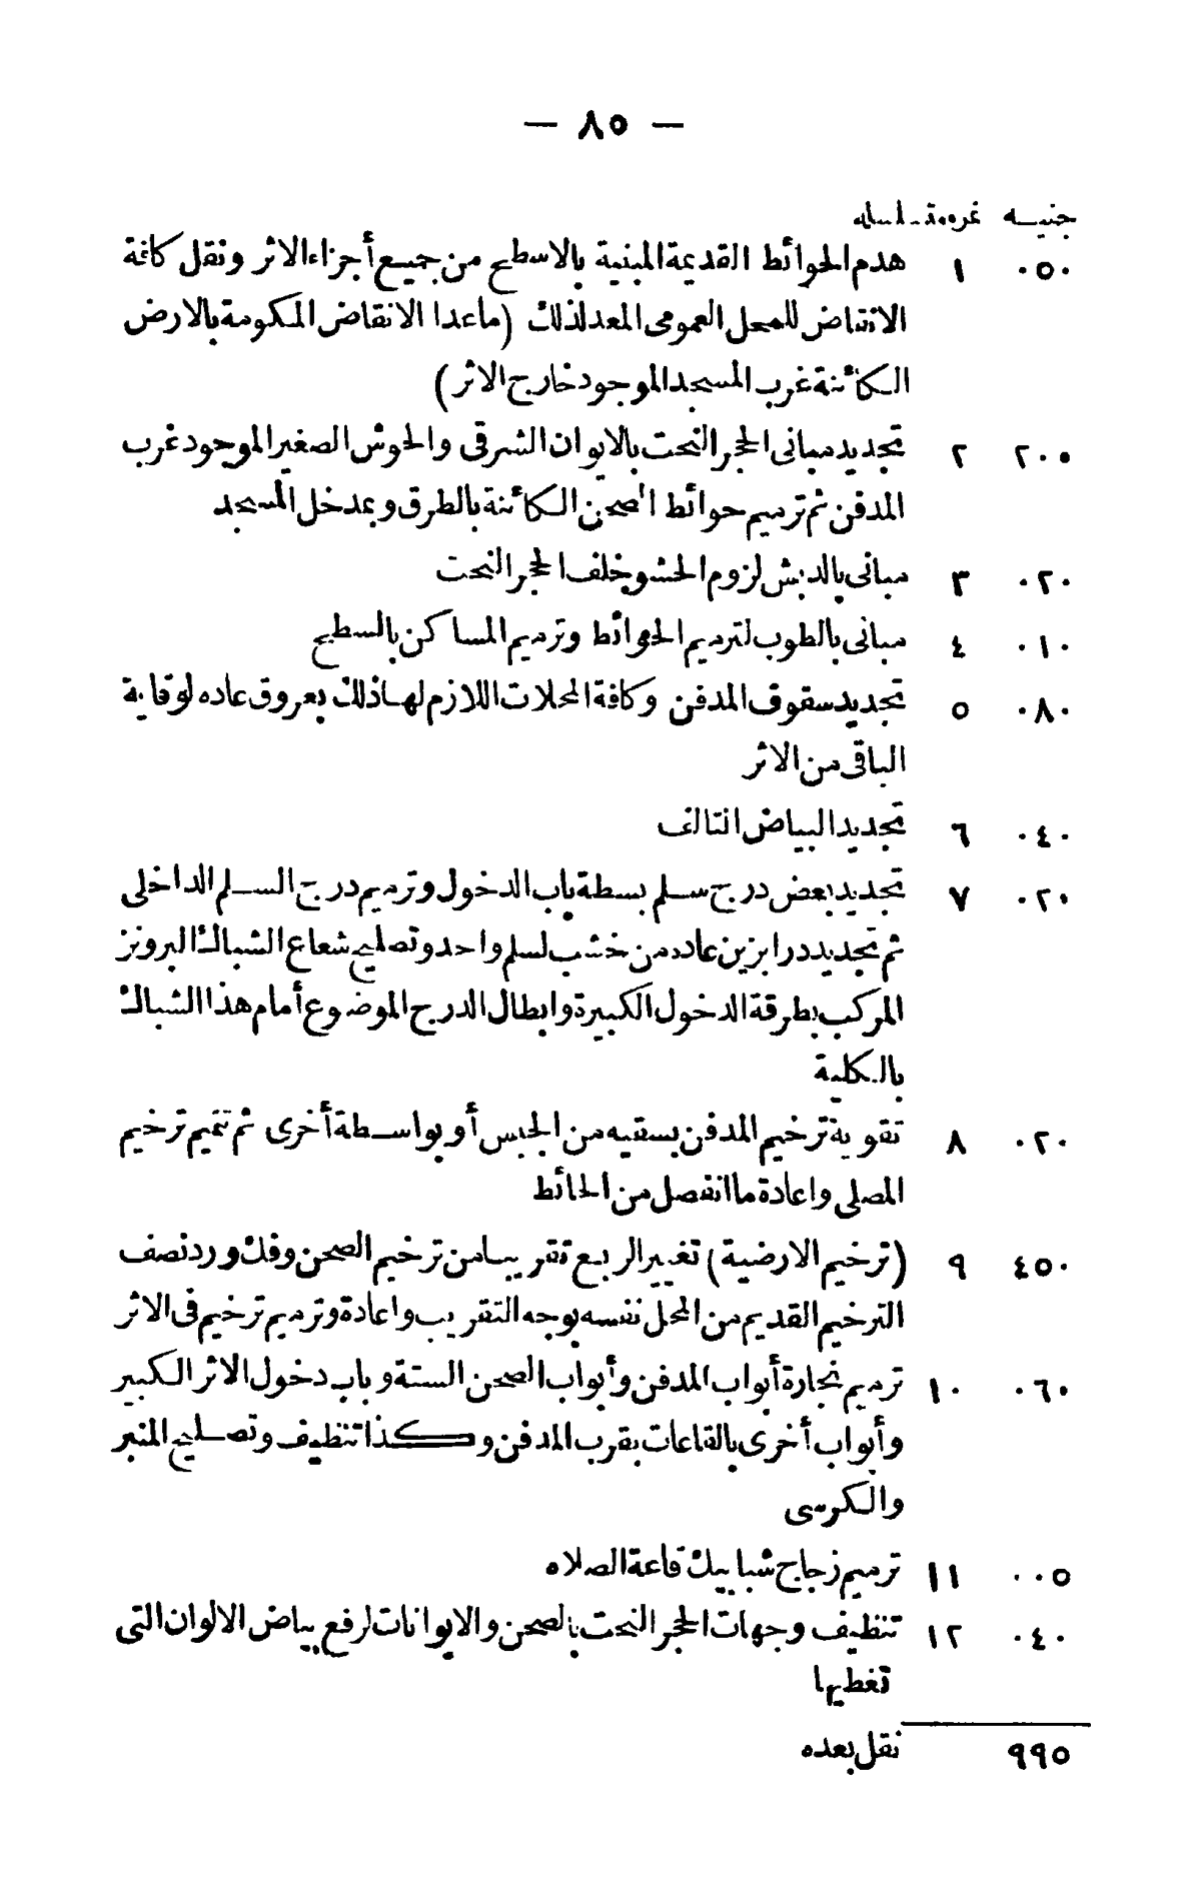 — ٨٥ —
جنيه نمرة مسلسله
٠٥٠ ١ هدم الحوائط القديمة المبنية بالاسطح من جميع أجزاء الاثر ونقل كافة
الانقاض للمحل العمومى المعد لذلك (ماعدا الانقاض المكومة بالارض
الكائنة غرب المسجد الموجود خارج الاثر)
٢٠٠ ٢ تجديد مبانى الحجر النحت بالايوان الشرقى والحوش الصغير الموجود غرب
المدفن ثم ترميم حوائط الصحن الكائنة بالطرق وبمدخل المسجد
٠٢٠ ٣ مبانى بالدبش لزوم الحشو خلف الحجر النحت
٠١٠ ٤ مبانى بالطوب لترميم الحوائط وترميم المساكن بالسطح
٠٨٠ ٥ تجديد سقوف المدفن وكافة المحلات اللازم لها ذلك بعروق عاده لوقاية
الباقى من الاثر
٠٤٠ ٦ تجديد البياض التالف
٠٢٠ ٧ تجديد بعض درج سلم بسطة باب الدخول وترميم درج السلم الداخلى
ثم تجديد درابزين عاده من خشب لسلم واحد وتصليح شعاع الشباك البرونز
المركب بطرقة الدخول الكبيرة وابطال الدرج الموضوع أمام هذا الشباك
بالكلية
٠٢٠ ٨ تقوية ترخيم المدفن بسقيه من الجبس أو بواسطة أخرى ثم تتميم ترخيم
المصلى واعادة ما انفصل من الحائط
٤٥٠ ٩ (ترخيم الارضية) تغيير الربع تقريبا من ترخيم الصحن وفك ورد نصف
الترخيم القديم من المحل نفسه بوجه التقريب واعادة وترميم ترخيم فى الاثر
٠٦٠ ١٠ ترميم نجارة أبواب المدفن وأبواب الصحن الستة وباب دخول الاثر الكبير
وأبواب أخرى بالقاعات بقرب المدفن وكذا تنظيف وتصليح المنبر
والكرسى
٠٠٥ ١١ ترميم زجاج شبابيك قاعة الصلاه
٠٤٠ ١٢ تنظيف وجهات الحجر النحت بالصحن والايوانات لرفع بياض الالوان التى
تغطيها
٩٩٥ نقل بعده